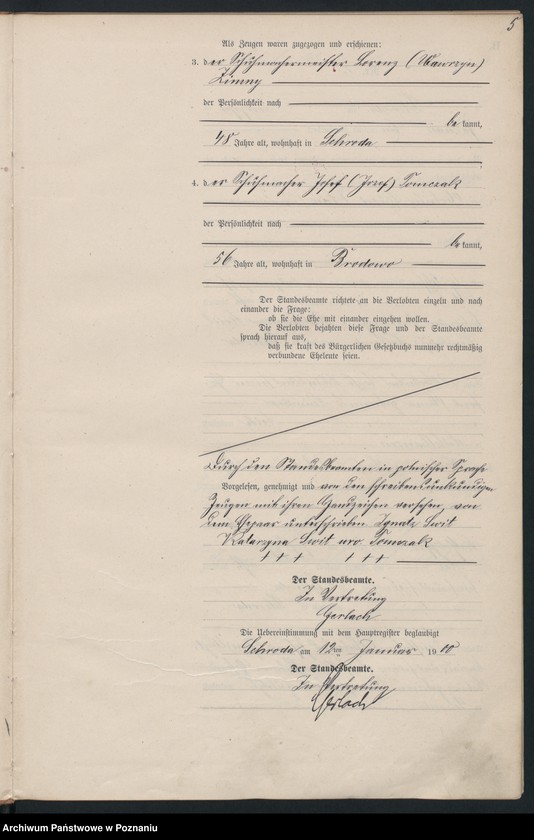 5
Als Zeugen waren zugezogen und erschienen:
3. der Schuhmachermeister Lorenz (Wawrzyn)
Zimny
der Persönlichkeit nach
bekannt,
48 Jahre alt, wohnhaft in Schroda
4. der Schuhmacher Josef (Jozef) Tomczak
der Persönlichkeit nach
bekannt,
56 Jahre alt, wohnhaft in Brodowo
Der Standesbeamte richtete an die Verlobten einzeln und nach
einander die Frage:
ob sie die Ehe mit einander eingehen wollen.
Die Verlobten bejahten diese Frage und der Standesbeamte
sprach hierauf aus,
daß sie kraft des Bürgerlichen Gesetzbuchs nunmehr rechtmäßig
verbundene Eheleute seien.
Durch den Standesbeamten in polnischer Sprache
Vorgelesen, genehmigt und von den schreibensunkundigen
Zeugen mit ihren Handzeichen versehen, von
dem Ehepaar unterschrieben Ignatz Swit
Katarzyna Swit uro. Tomczak
+++ +++
Der Standesbeamte.
In Vertretung
Gerlach
Die Uebereinstimmung mit dem Hauptregister beglaubigt
Schroda am 12ten Januar 1900
Der Standesbeamte.
In Vertretung
Gerlach
Archiwum Państwowe w Poznaniu